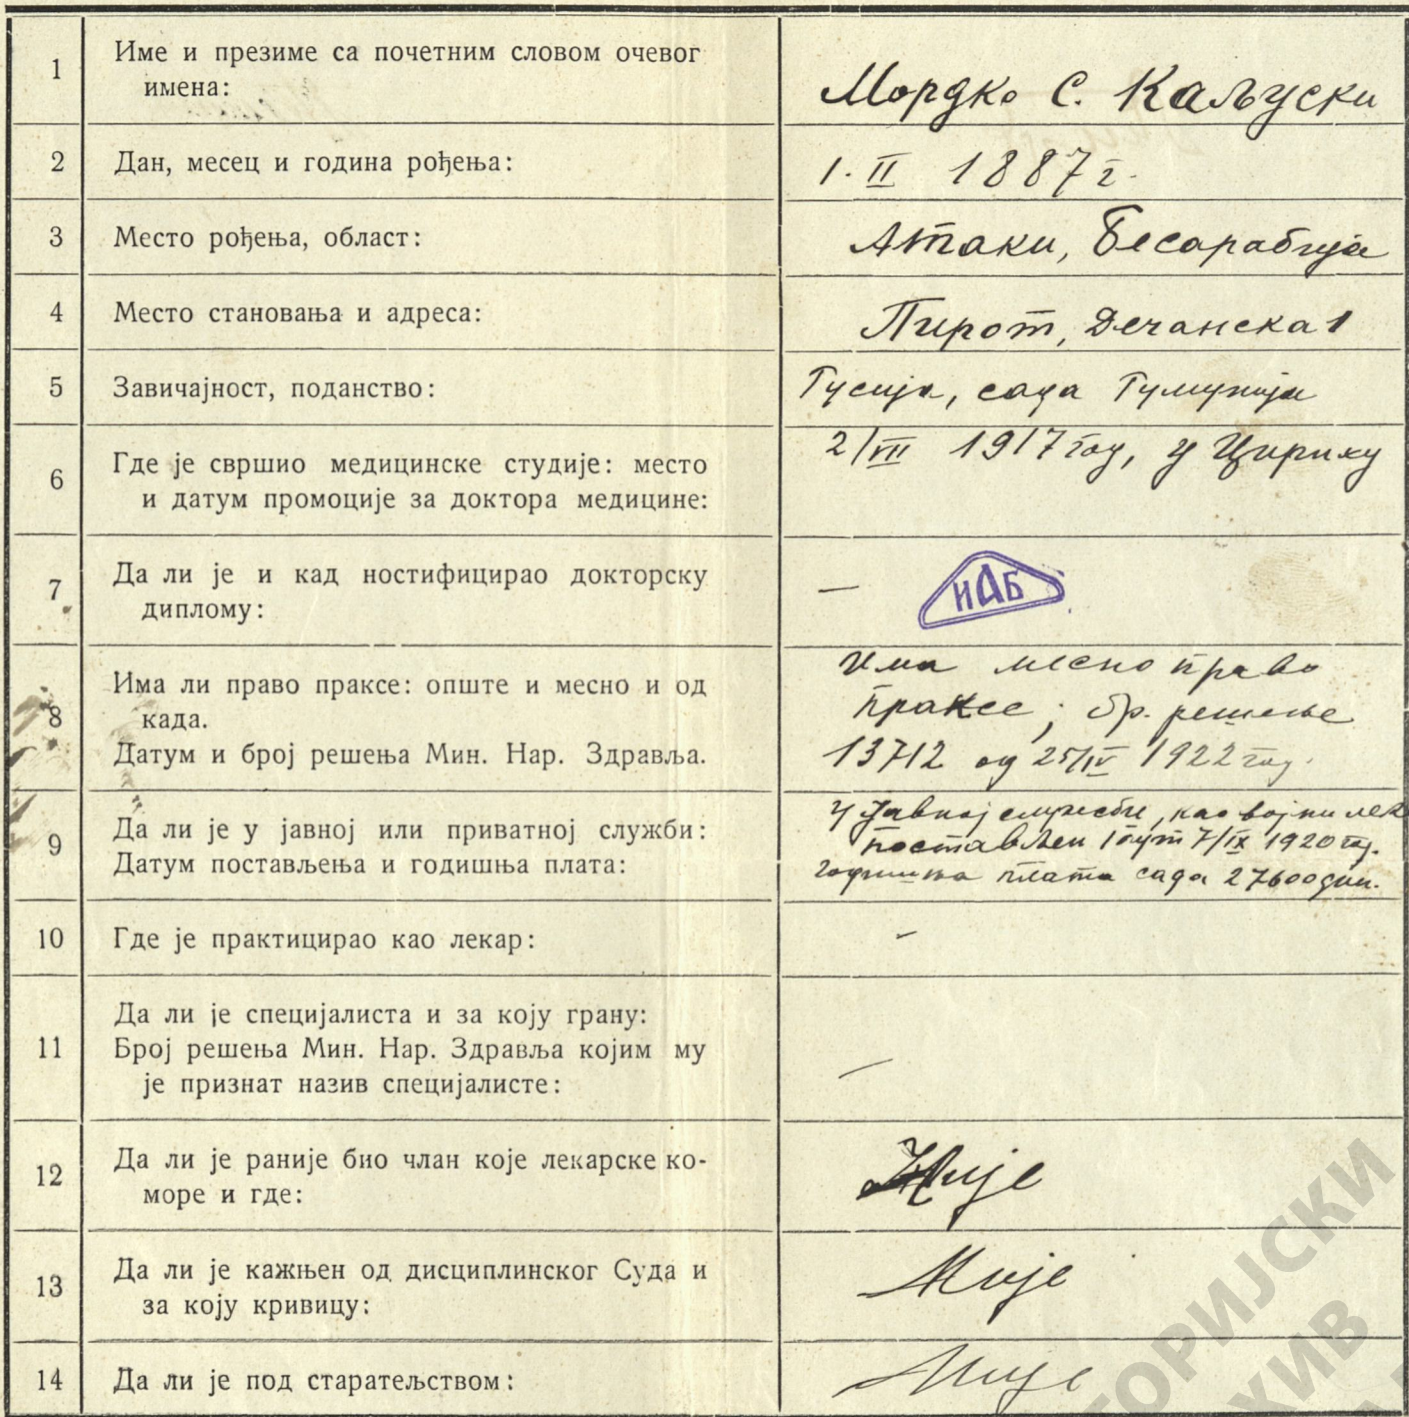 1 Име и презиме са почетним словом очевог
имена:
Мордко С. Каљуски
2 Дан, месец и година рођења:
1. II 1887 г.
3 Место рођења, област:
Атаки, Бесарабија
4 Место становања и адреса:
Пирот, Дечанска 1
5 Завичајност, поданство:
Русија, сада Румунија
6 Где је свршио медицинске студије: место
и датум промоције за доктора медицине:
2/VII 1917 год, у Цириху
7 Да ли је и кад ностифицирао докторску
диплому:
—
ИАБ
8 Има ли право праксе: опште и месно и од
када.
Датум и број решења Мин. Нар. Здравља.
Има месно право
праксе; бр. решење
13712 од 25/IV 1922 год.
9 Да ли је у јавној или приватној служби:
Датум постављења и годишња плата:
У јавној служби, као војни лек
постављен I пут 7/IX 1920 год.
годишња плата сада 27600 дин.
10 Где је практицирао као лекар:
–
11 Да ли је специјалиста и за коју грану:
Број решења Мин. Нар. Здравља којим му
је признат назив специјалисте:
—
12 Да ли је раније био члан које лекарске ко-
море и где:
Није
13 Да ли је кажњен од дисциплинског Суда и
за коју кривицу:
Није
14 Да ли је под старатељством:
Није
ТОРИЈСКИ
ХИВ